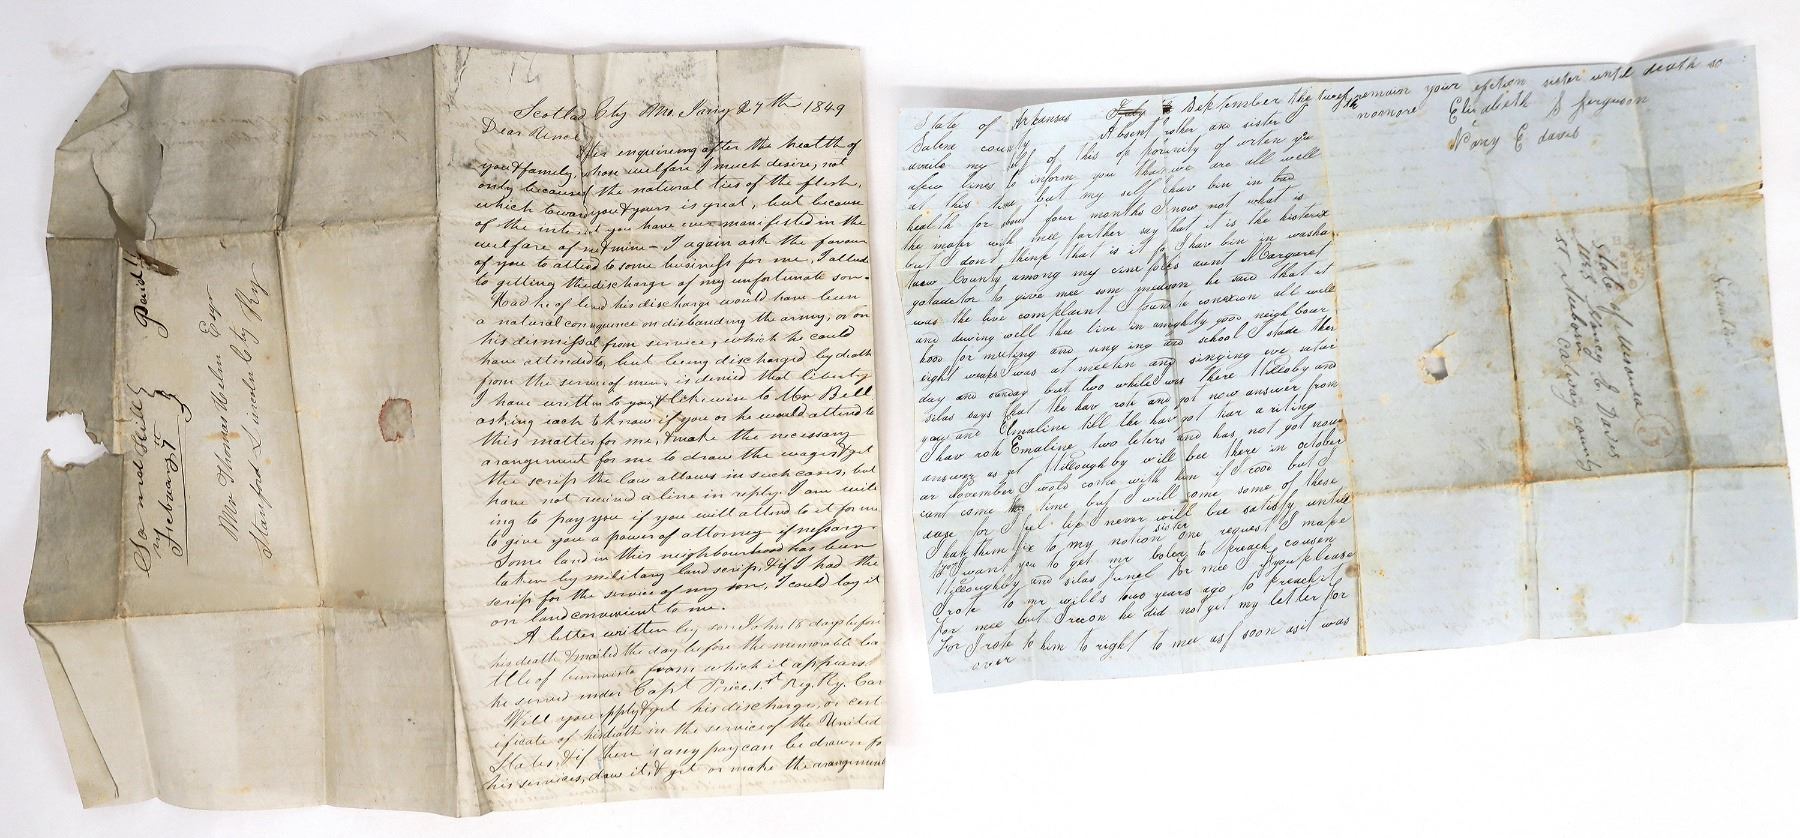 Scotland Cty Mo. Jany 27th 1849
Dear Uncle
After enquireing after the health of
you & family, whose welfare I much desire, not
only because of the natural ties of the flesh,
which toward you & yours is great, but because
of the interest you have ever manifested in the
welfare of me & mine — I again ask the favour
of you to attend to some business for me, I allude
to getting the discharge of my unfortunate son —
Had he of lived his discharge would have been
a natural consequence on disbanding the army, or on
his dismissal from service, which he could
have attended to, but being discharged by death
from the service of men, is denied that liberty
I have written to you & likewise to Mr Bell
asking each to know if you or he would attend to
this matter for me, & make the necessary
arangement for me to draw the wages & get
the scrip the law allows in such cases, but
have not recived a line in reply. I am will
ing to pay you if you will attend to it for me
to give you a power of attorney if nessary
Some land in this neighbourhood has been
taken by military land scrip, & if I had the
scrip for the service of my son, I could lay it
on land convenient to me.
A letter written by son John 18 days before
his death & mailed the day before the memorable bat
ttle of from which it appears
he served under Capt Price, 1st Reg. Ky. Cav
Will you apply & get his discharge, or cert
ificate of his death in the service of the United
States, & if there is any pay can be drawn for
his services, draw it, & get or make the arangement
Paid
February 1st
Mr Thomas Helm Esqr
Stanford Lincoln Cty Ky
State of Arkansas July September the twelfth
Saline county Absent brother and sister I
avale my self of this oportunity of writen you
a few lines to inform you that we are all well
at this time but my self I hav bin in bad
health for about four months I now not what is
the mater with mee farther say that it is the histerix
but I dont think that is it I hav bin in washa
taw County among my cine folks aunt Margaret
got a docter to give mee som medison he said that it
was the live complaint I found the conexion all well
and duwing well thee live in a mighty good neighbour
hood for meeting and sing ing and school I stade ther
eight weaks I was at meeten and singing eve satur
day and sunday but two while I was there Willoby and
silas says that the hav rote and got now answer from
you and Emaline till the hav not har a riting
I hav rote Emaline two leters and has not got now
answer as yet Willoughby will bee there in october
ar november I wold come with him if I cood but I
cant come this time but I will come some of these
dase for I feel like I never will bee satisfy untill
I hav them fix to my notion sister one request I make
too you I want you to get mr to preach cousen
Willoughby and silas funel for mee if you please
I rote to mr wills two years ago to preach it
for mee but I recon he did not get my letter for
for I rote to him to right to mee as soon as it was
over
remain your efction sister until death so
nomore Elizabeth S ferguson
Nancy E davis
State of Missouria
Mrs Nancy E Davis
Calaway county